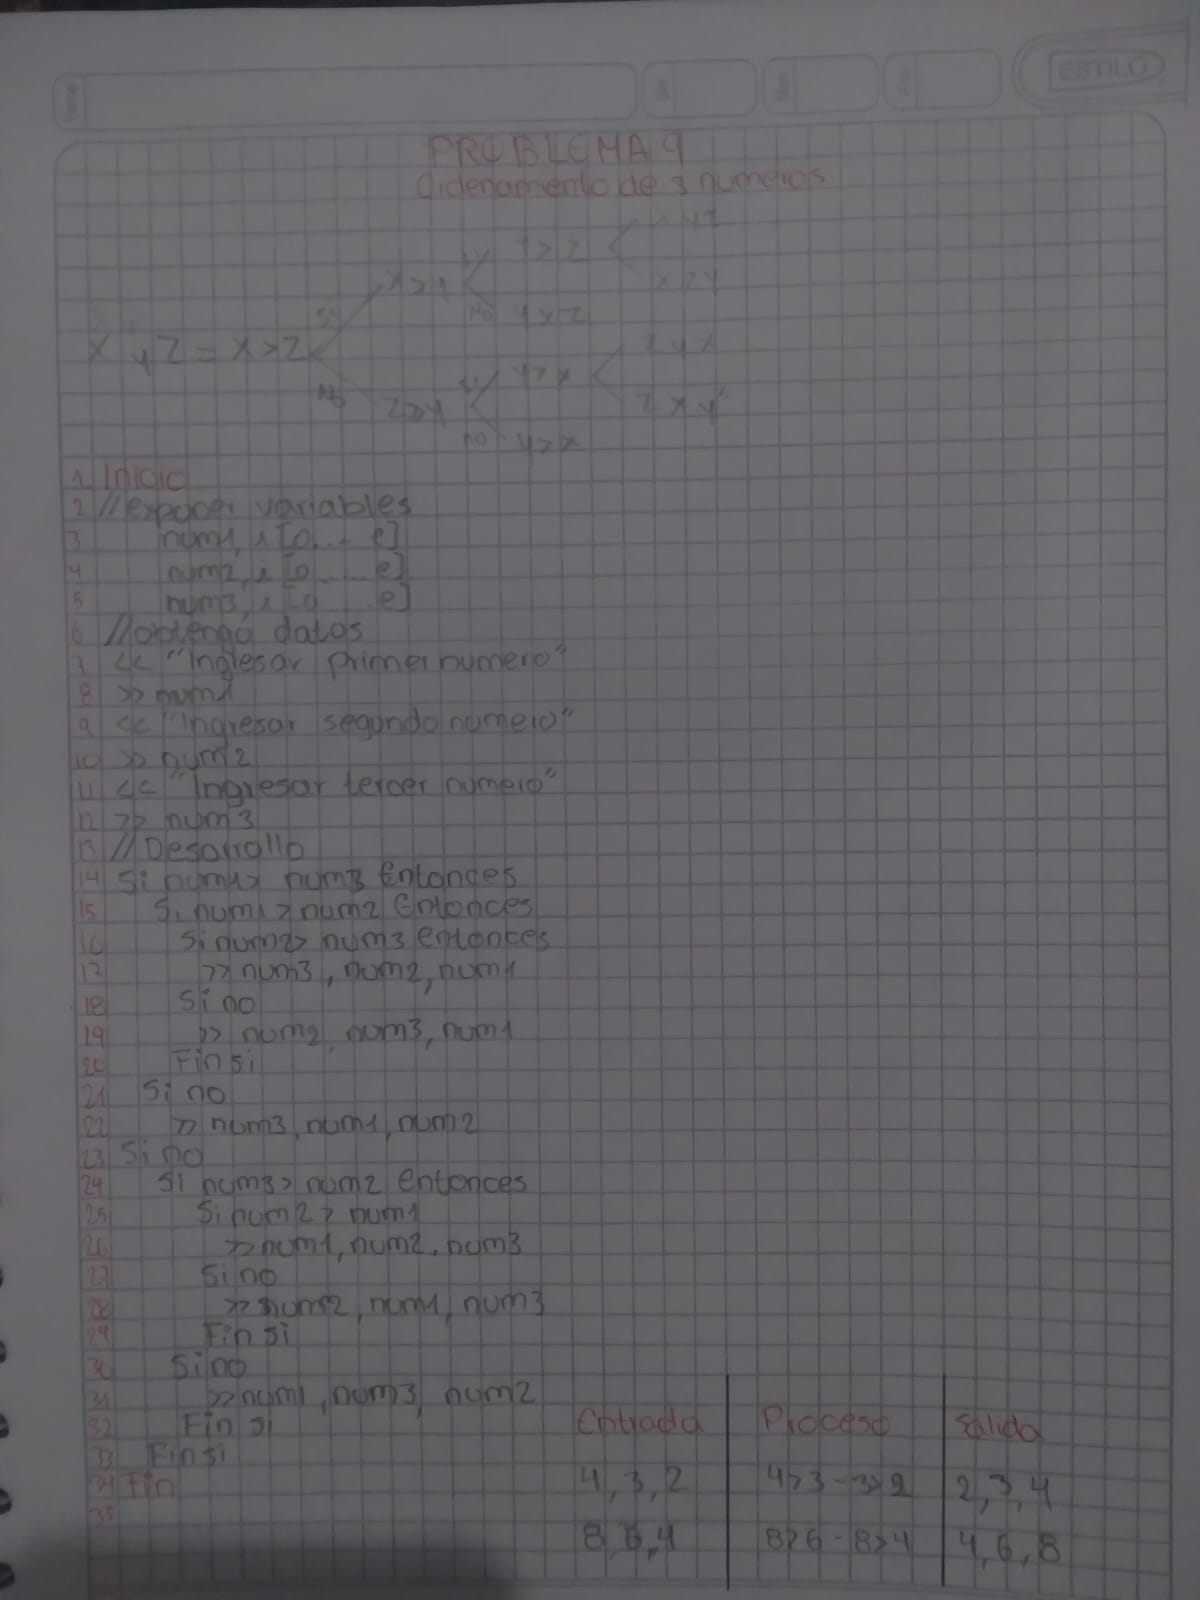 ESTILO
PROBLEMA 9
Ordenamiento de 3 numeros
x y z = x > z
Si
x > y
y > z
x > y
No
y x z
No
z > y
y > x
z y x
z x y
no
y > x
1 Inicio
2 // exponer variables
3 num1, i [0... e]
4 num2, i [0.....e]
5 num3, i [0.....e]
6 // obtengo datos
7 << "Ingresar primer numero"
8 >> num1
9 << "Ingresar segundo numero"
10 >> num2
11 << "Ingresar tercer numero"
12 >> num3
13 // Desarrollo
14 Si num1 > num3 Entonces
15 Si num1 > num2 Entonces
16 Si num2 > num3 entonces
17 >> num3, num2, num1
18 Si no
19 >> num2, num3, num1
20 Fin si
21 Si no
22 >> num3, num1, num2
23 Si no
24 Si num3 > num2 entonces
25 Si num2 > num1
26 >> num1, num2, num3
27 Si no
28 >> num2, num1, num3
29 Fin si
30 Si no
31 >> num1, num3, num2
32 Fin si
33 Fin si
34 Fin
35
Entrada Proceso Salida
4, 3, 2 4>3 - 3>2 2, 3, 4
8, 6, 4 8>6 - 8>4 4, 6, 8